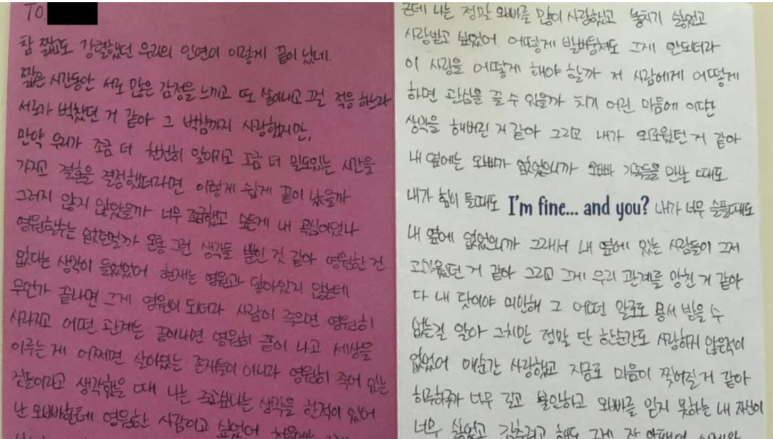 TO.
참 짧고도 강렬했던 우리의 인연이 이렇게 끝이 났네.
짧은 시간동안 서로 많은 감정을 느끼고 또 쏟아내고 그걸 적응하느라
서로가 벅찼던 거 같아 그 벅참까지 사랑했지만,
만약 우리가 조금 더 천천히 알아가고 조금 더 밀도있는 시간을
가지고 결혼을 결정했더라면 이렇게 쉽게 끝이 났을까
그러지 않지 않았을까 너무 조급했고 모든게 내 욕심이었나
영원할수는 없었던걸까 온통 그런 생각들 뿐인 것 같아 영원한 건
없다는 생각이 들었었어 현재는 영원과 닿아있지 않는데
무언가 끝나면 그게 영원이 되더라 사람이 죽으면 영원히
사라지고 어떤 관계는 끝이나면 영원히 끝이 나고 세상을
이루는 게 어쩌면 살아있는 존재들이 아니라 영원히 죽어 있는
것들이라고 생각했을 때 나는 죽고싶다는 생각을 한적이 있어
난 오빠한테 영원한 사람이고 싶었어
근데 나는 정말 오빠를 많이 사랑했고 놓치기 싫었고
사랑받고 싶었어 어떻게 발버둥쳐도 그게 안되더라
이 사랑을 어떻게 해야 할까 저 사람에게 어떻게
하면 관심을 끌 수 있을까 치기 어린 마음에 어떤
생각을 해버린 거 같아 그리고 내가 외로웠던 거 같아
내 옆에는 오빠가 없었으니까 오빠 가족들을 만날 때도
내가 힘이 들때도 I'm fine... and you? 내가 너무 슬플때도
내 옆에 없었으니까 그래서 내 옆에 있는 사람들이 그저
고마웠던 거 같아 그리고 그게 우리 관계를 망친 거 같아
다 내 탓이야 미안해 그 어떤 말로도 용서 빌을 수
없는걸 알아 그치만 정말 단 한순간도 사랑하지 않은적이
없었어 매순간 사랑했고 지금도 마음이 찢어질 거 같아
하루하루가 너무 길고 불안하고 오빠를 잊지 못하는 내 자신이
너무 싫었고